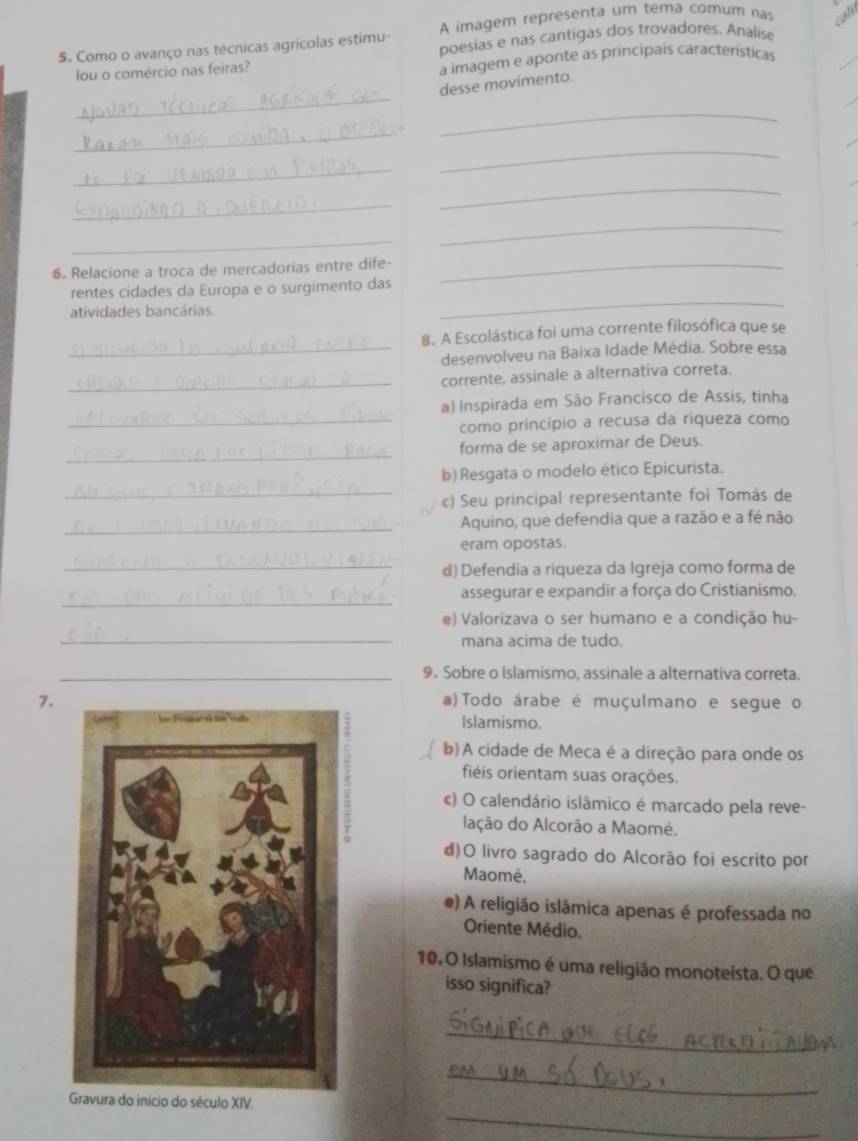 5. Como o avanço nas técnicas agrícolas estimu-
lou o comércio nas feiras?
NOVAS TÉCNICAS AGRÍCOLAS GE-
RARAM MAIS COMIDA, O EXCEDEN-
te foi VENDIDO EM FEIRAS,
EXPANDINDO O COMÉRCIO.
6. Relacione a troca de mercadorias entre dife-
rentes cidades da Europa e o surgimento das
atividades bancárias.
O AUMENTO DO COMÉRCIO ENTRE
CIDADES EUROPEIAS GEROU A
DE SEGUROS
PARA FACILITAR
DE LEVANDO AO SUR-
GIMENTO E DESENVOLVIMEN-
TO DAS ATIVIDADES BANCÁ-
RIAS.
7.
© HEIDELBERG UNIVERSITY LIBRARY
Gravura do início do século XIV.
A imagem representa um tema comum nas
poesias e nas cantigas dos trovadores. Analise
a imagem e aponte as principais características
desse movimento.
8. A Escolástica foi uma corrente filosófica que se
desenvolveu na Baixa Idade Média. Sobre essa
corrente, assinale a alternativa correta.
a) Inspirada em São Francisco de Assis, tinha
como princípio a recusa da riqueza como
forma de se aproximar de Deus.
b) Resgata o modelo ético Epicurista.
c) Seu principal representante foi Tomás de
Aquino, que defendia que a razão e a fé não
eram opostas.
d) Defendia a riqueza da Igreja como forma de
assegurar e expandir a força do Cristianismo.
e) Valorizava o ser humano e a condição hu-
mana acima de tudo.
9. Sobre o Islamismo, assinale a alternativa correta.
a) Todo árabe é muçulmano e segue o
Islamismo.
b) A cidade de Meca é a direção para onde os
fiéis orientam suas orações.
c) O calendário islâmico é marcado pela reve-
lação do Alcorão a Maomé.
d) O livro sagrado do Alcorão foi escrito por
Maomé.
e) A religião islâmica apenas é professada no
Oriente Médio.
10. O Islamismo é uma religião monoteísta. O que
isso significa?
SIGNIFICA QUE ELES ACREDITAVAM
EM UM SÓ DEUS.